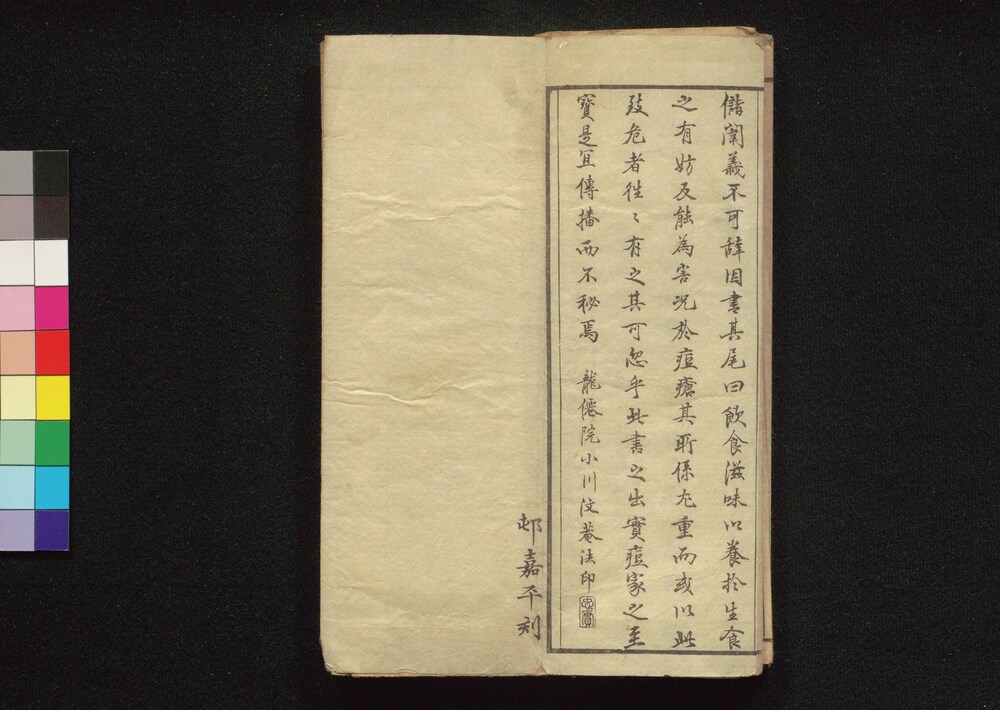 儲闈義不可辞因書其尾曰飲食滋味以養於生食
之有妨反能為害况於痘瘡其所係尤重而或以此
致危者徃〻有之其可忽乎此書之出實痘家之至
寶是宜傳播而不秘焉　龍僊院小川汶菴法印
邨嘉平刻